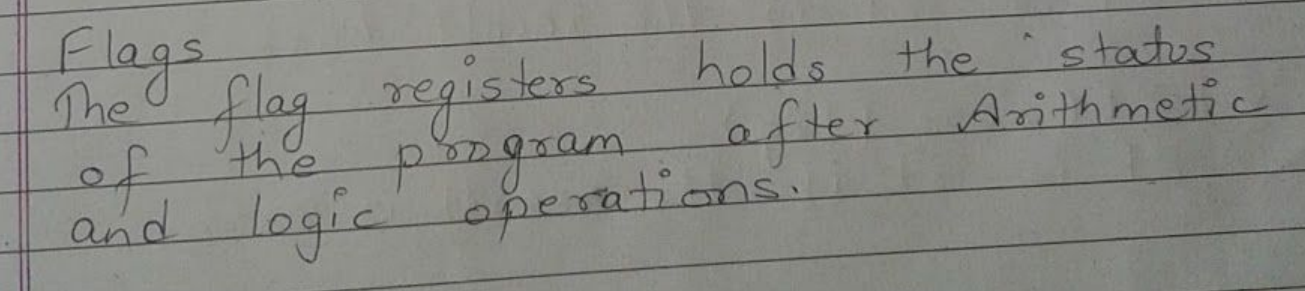 Flags
The flag registers holds the status
of the program after Arithmetic
and logic operations.